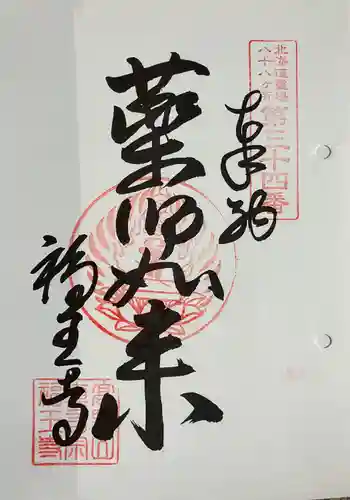 北海道霊場
八十八ヶ所
第三十四番
奉拝
薬師如来
福王寺
高野山
福王寺